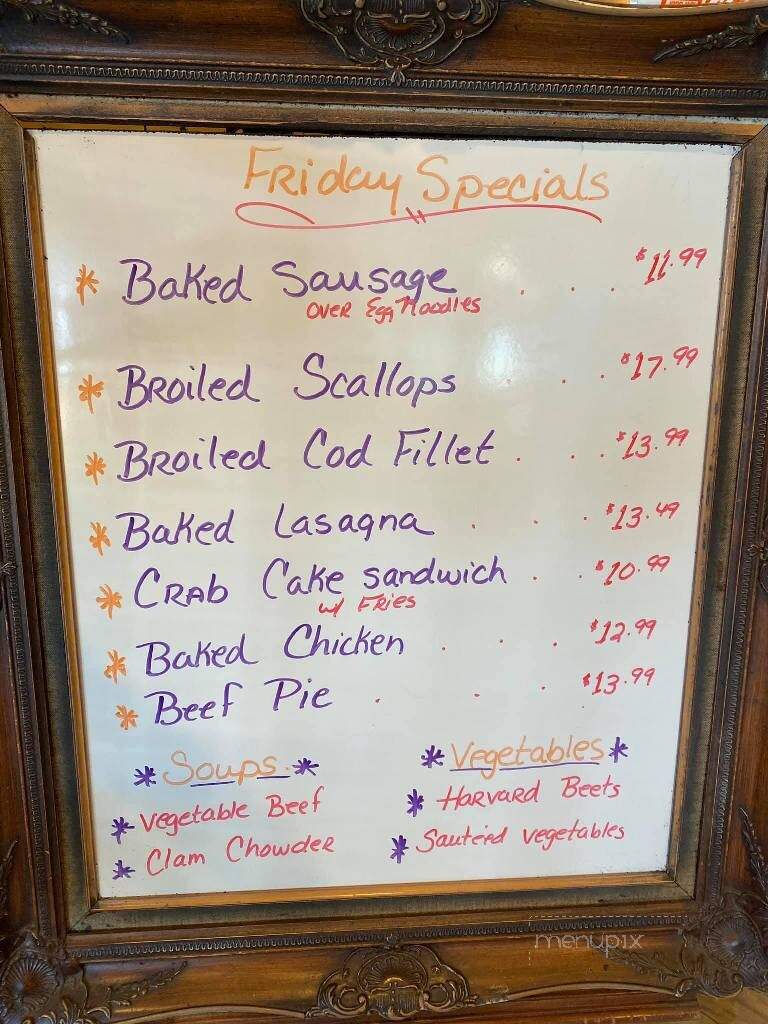 Friday Specials
* Baked Sausage . . . $11.99
over Egg Noodles
* Broiled Scallops . . . $17.99
* Broiled Cod Fillet . . . $13.99
* Baked Lasagna . . . $13.49
* Crab Cake sandwich . . $10.99
w/ Fries
* Baked Chicken . . . $12.99
* Beef Pie . . . $13.99
* Soups *
* Vegetable Beef
* Clam Chowder
* Vegetables *
* Harvard Beets
* Sauteed vegetables
menupix